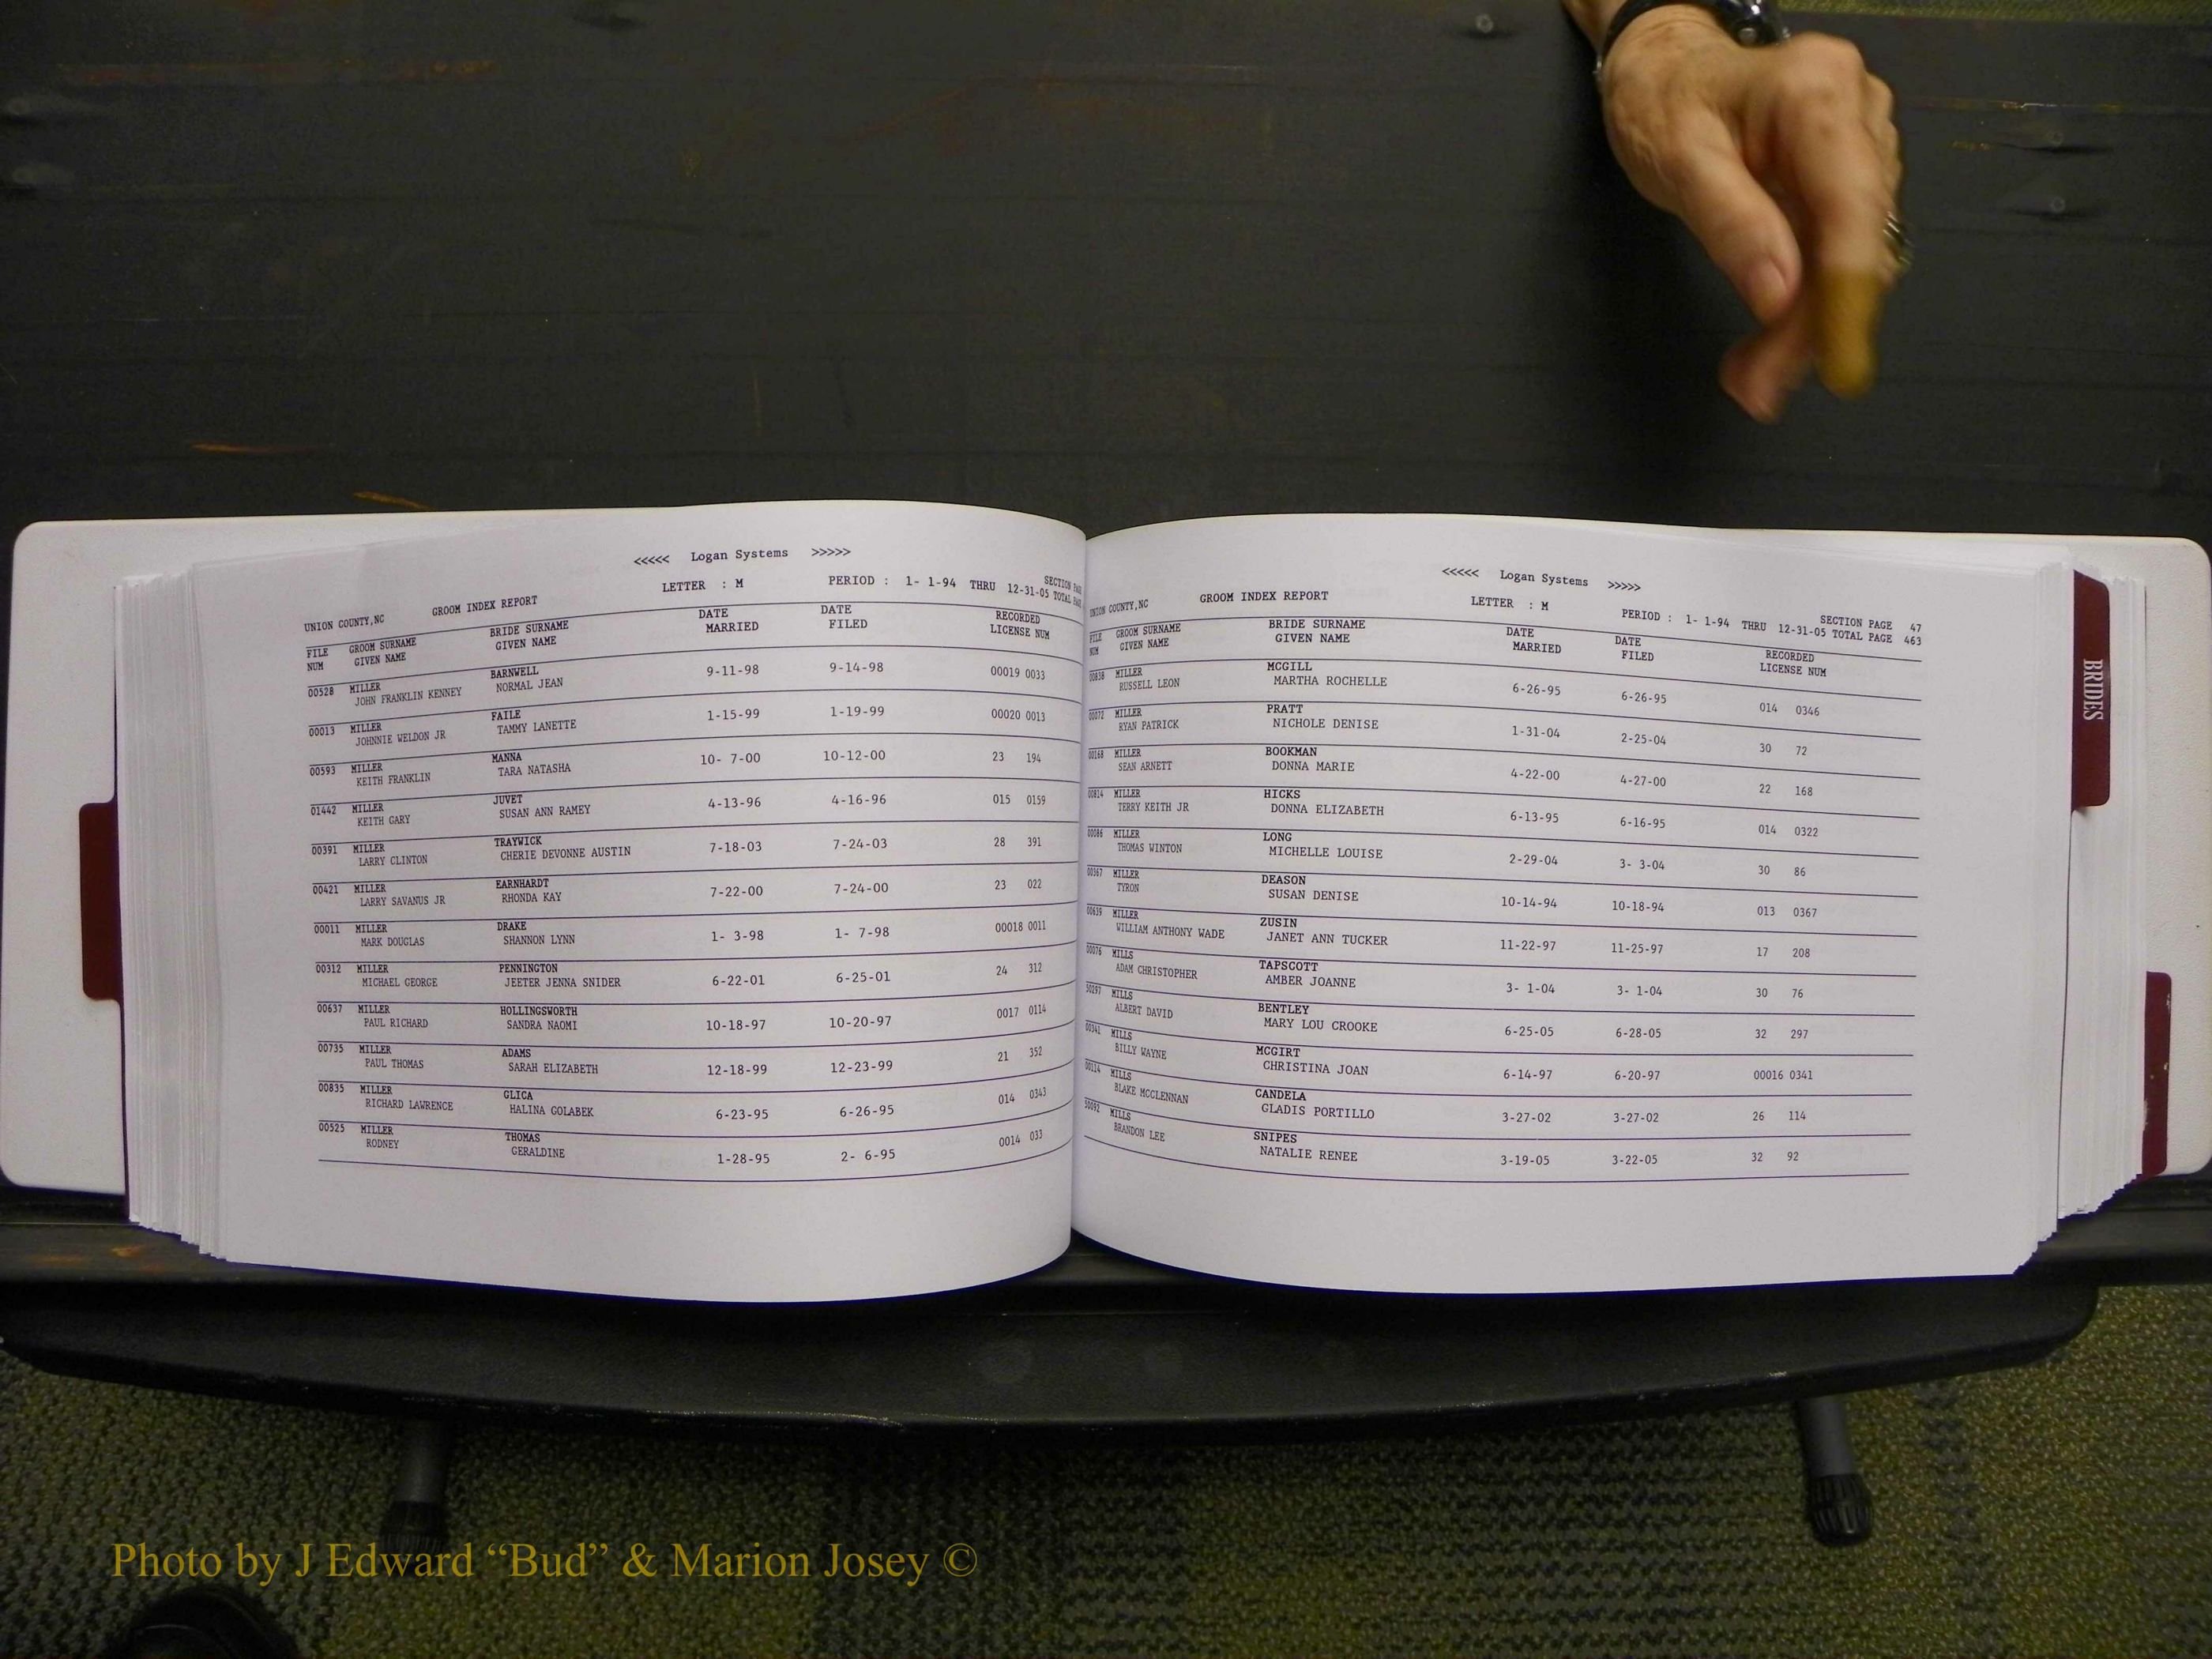 <<<<< Logan Systems >>>>>
UNION COUNTY,NC GROOM INDEX REPORT LETTER : M PERIOD : 1- 1-94 THRU 12-31-05 SECTION
TOTAL
FILE GROOM SURNAME BRIDE SURNAME DATE DATE RECORDED
NUM GIVEN NAME GIVEN NAME MARRIED FILED LICENSE NUM
00528 MILLER BARNWELL 9-11-98 9-14-98 00019 0033
JOHN FRANKLIN KENNEY NORMAL JEAN
00013 MILLER FAILE 1-15-99 1-19-99 00020 0013
JOHNNIE WELDON JR TAMMY LANETTE
00593 MILLER MANNA 10- 7-00 10-12-00 23 194
KEITH FRANKLIN TARA NATASHA
01442 MILLER JUVET 4-13-96 4-16-96 015 0159
KEITH GARY SUSAN ANN RAMEY
00391 MILLER TRAYWICK 7-18-03 7-24-03 28 391
LARRY CLINTON CHERIE DEVONNE AUSTIN
00421 MILLER EARNHARDT 7-22-00 7-24-00 23 022
LARRY SAVANUS JR RHONDA KAY
00011 MILLER DRAKE 1- 3-98 1- 7-98 00018 0011
MARK DOUGLAS SHANNON LYNN
00312 MILLER PENNINGTON 6-22-01 6-25-01 24 312
MICHAEL GEORGE JEETER JENNA SNIDER
00637 MILLER HOLLINGSWORTH 10-18-97 10-20-97 0017 0114
PAUL RICHARD SANDRA NAOMI
00735 MILLER ADAMS 12-18-99 12-23-99 21 352
PAUL THOMAS SARAH ELIZABETH
00835 MILLER GLICA 6-23-95 6-26-95 014 0343
RICHARD LAWRENCE HALINA GOLABEK
00525 MILLER THOMAS 1-28-95 2- 6-95 0014 033
RODNEY GERALDINE
<<<<< Logan Systems >>>>>
UNION COUNTY,NC GROOM INDEX REPORT LETTER : M PERIOD : 1- 1-94 THRU 12-31-05 SECTION PAGE 47
TOTAL PAGE 463
FILE GROOM SURNAME BRIDE SURNAME DATE DATE RECORDED
NUM GIVEN NAME GIVEN NAME MARRIED FILED LICENSE NUM
00838 MILLER MCGILL 6-26-95 6-26-95 014 0346
RUSSELL LEON MARTHA ROCHELLE
00072 MILLER PRATT 1-31-04 2-25-04 30 72
RYAN PATRICK NICHOLE DENISE
00168 MILLER BOOKMAN 4-22-00 4-27-00 22 168
SEAN ARNETT DONNA MARIE
00814 MILLER HICKS 6-13-95 6-16-95 014 0322
TERRY KEITH JR DONNA ELIZABETH
00086 MILLER LONG 2-29-04 3- 3-04 30 86
THOMAS WINTON MICHELLE LOUISE
00367 MILLER DEASON 10-14-94 10-18-94 013 0367
TYRON SUSAN DENISE
00639 MILLER ZUSIN 11-22-97 11-25-97 17 208
WILLIAM ANTHONY WADE JANET ANN TUCKER
00076 MILLS TAPSCOTT 3- 1-04 3- 1-04 30 76
ADAM CHRISTOPHER AMBER JOANNE
MILLS BENTLEY 6-25-05 6-28-05 32 297
ALBERT DAVID MARY LOU CROOKE
00341 MILLS MCGIRT 6-14-97 6-20-97 00016 0341
BILLY WAYNE CHRISTINA JOAN
00114 MILLS CANDELA 3-27-02 3-27-02 26 114
BLAKE MCCLENNAN GLADIS PORTILLO
MILLS SNIPES 3-19-05 3-22-05 32 92
BRANDON LEE NATALIE RENEE
BRIDES
Photo by J Edward “Bud” & Marion Josey ©